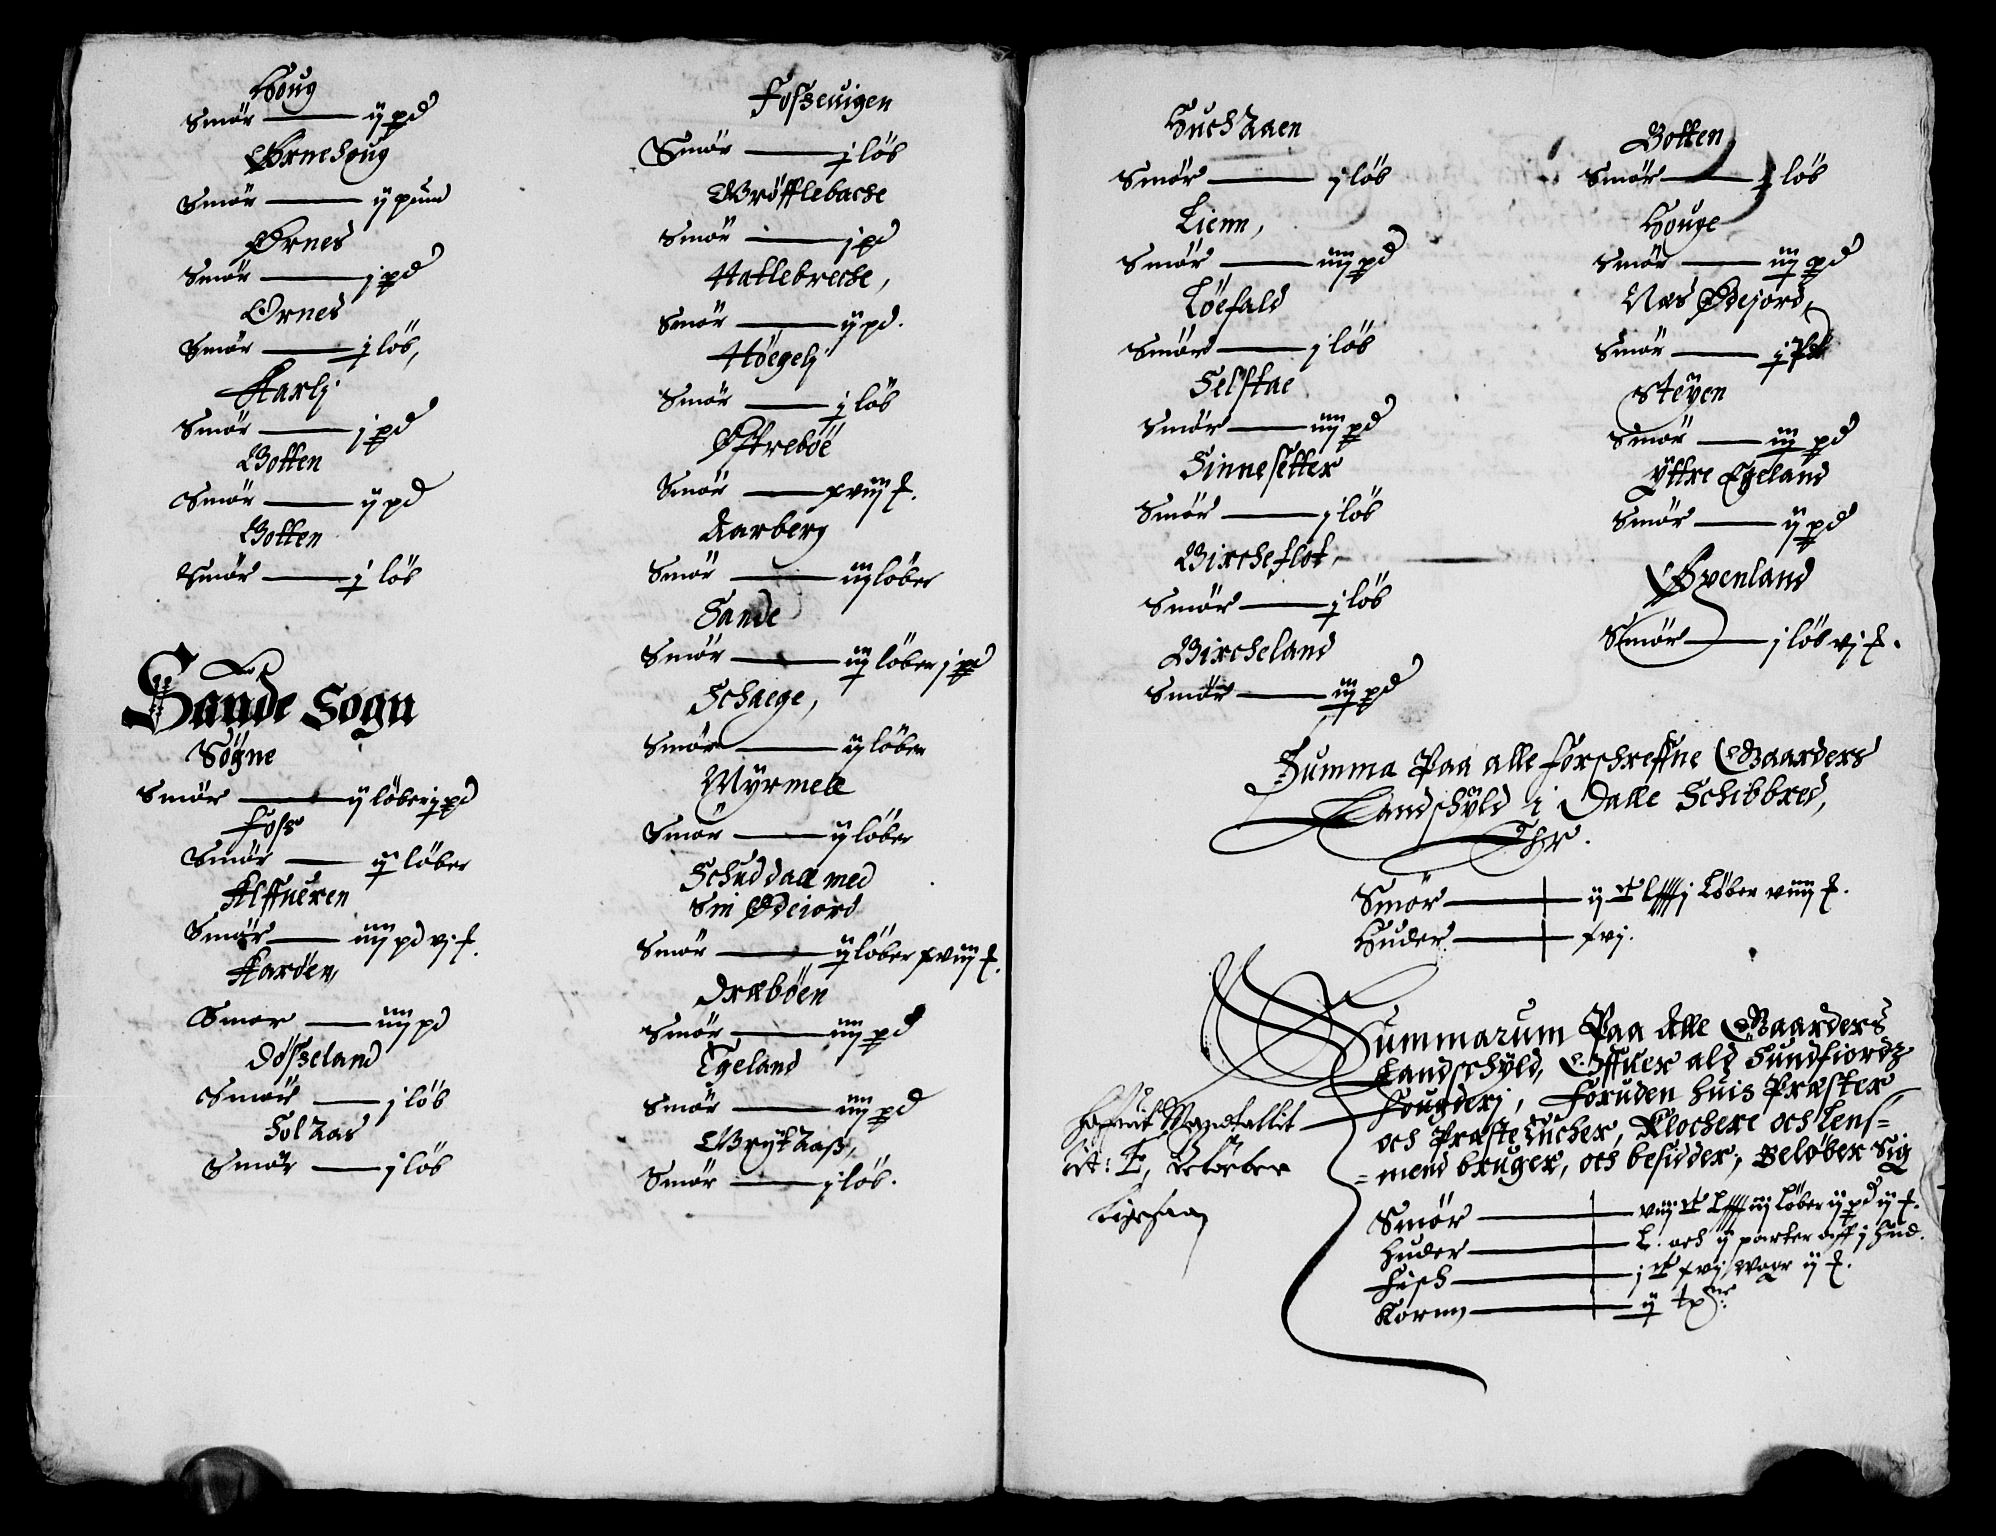 Houg
Smör — ij pd
Ørnehoug
Smör — ij pund
Ørnes
Smör — j pd
Ornes
Smör — j löb,
Karlj
Smör — j pd
Botten
Smör — ij pd
Botten
Smör — j löb
Sande Sogn
Sögne
Smör — ij löber j pd
Foss
Smör — ij löber
Alffueren
Smör — iiij pd vj £.
Karden,
Smör — iiij pd
Dösseland
Smör — j löb
Solaas
Smör — j löb
Fosseuigen
Smör — j löb
Gröfflebache
Smör — j pd
Hatlebreche,
Smör — ij pd.
Höegelj
Smör — j löb
Øfreböe
Smör — xviij £.
Aarberg
Smör — iij löber
Sande
Smör — iij löber j pd
Schaege,
Smör — ij löber
Myrmell
Smör — ij löber
Schuddall med
Sin Ødeiord
Smör — ij löber xviij £.
Dræböen
Smör — iiij pd
Egeland
Smör — iiij pd
Grytaas,
Smör — j löb.
Smör — j löb
Lienn,
Smör — iiij pd
Löefald
Smör — j löb
Selstae
Smör — iiij pd
Sinnesetter
Smör — j löb
Bircheflot,
Smör — j löb
Bircheland
Smör — iij pd
Botten
Smör — j löb
Houge
Smör — iij pd
Næs Ødejord,
Smör — j Pd
Steyen
Smör — iij pd
Yttre Egeland
Smör — ij pd
Øvenland
Smör — j löb vj £.
Summa Paa alle forschreffne Gaarders
Landschyld i Dalle Schibbred,
Ehr.
Smör — ij Löber viij £.
Huder — xvj.
Summarum Paa Alle Gaarders
Landschyld, Offuer ald Sundfiordz
Fougderj, Foruden huis Præster
och Præste Encher, Klochere och Lens=
=mend bruger, och besidder, Beløber Sig
Smör — Löber ij pd ij £.
Huder — L. och ij parter aff j hud.
Fisch — xvj Woger ij £.
Kornn — ij